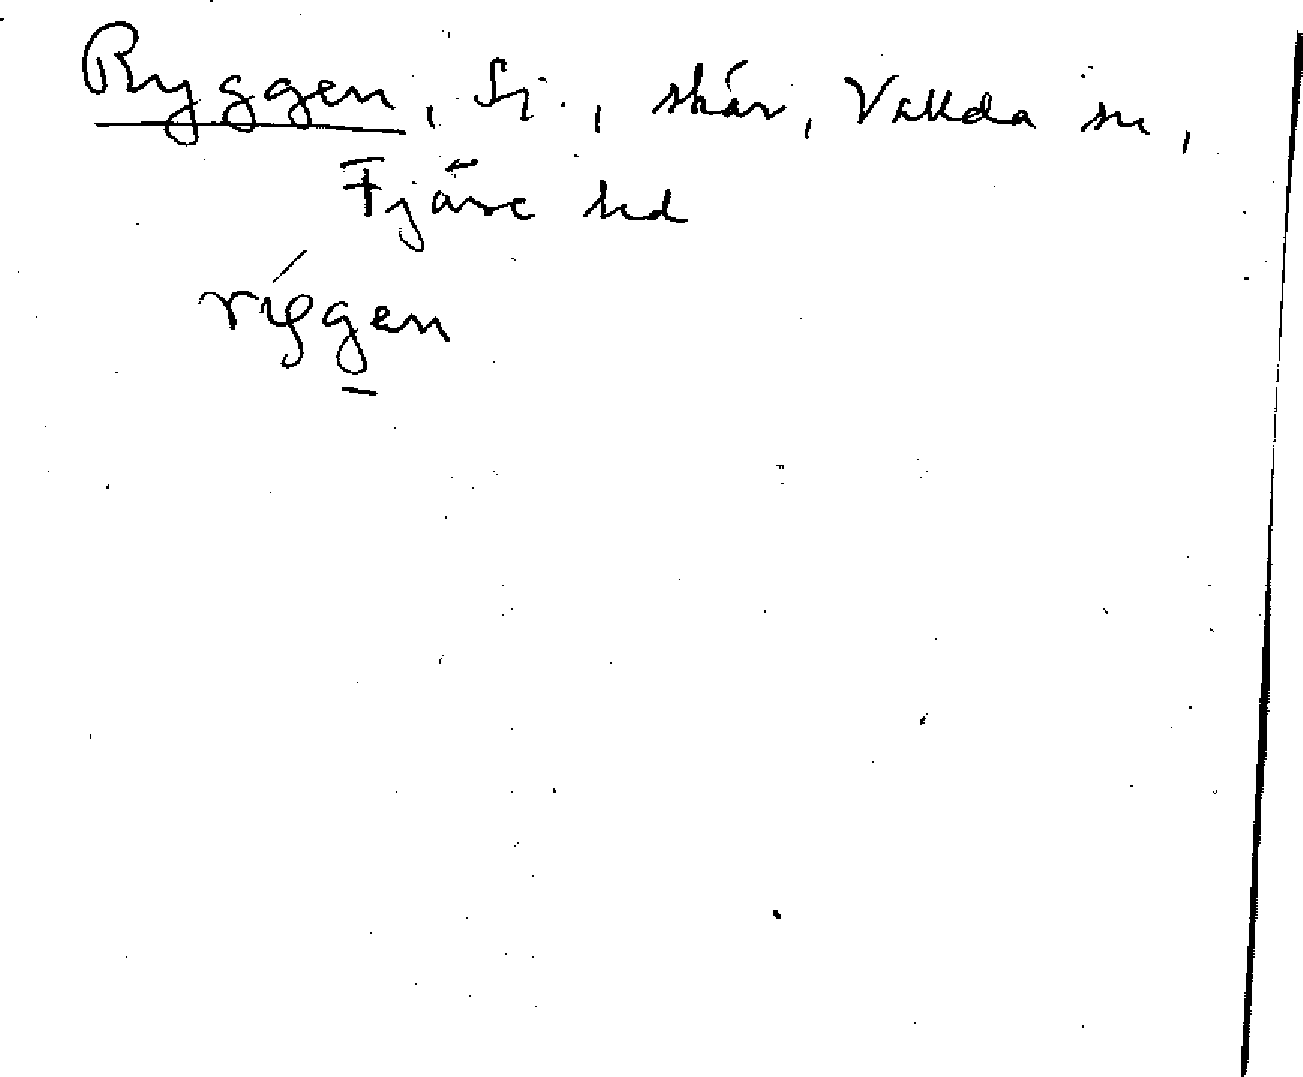 Ryggen, Si., skär, Vallda sn,
Fjäre hd
ríggen